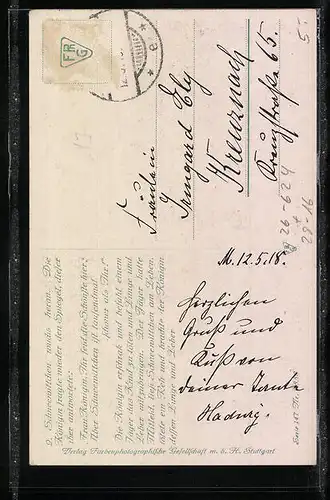 2. Schneewittchen wuchs heran. Die
Königin fragte wieder den Spiegel, dieser
aber antwortete:
Frau Königin, Ihr seid die Schönste hier,
Aber Schneewittchen ist tausendmal
schöner als Ihr!
Die Königin erschrak und befahl einem
Jäger das Kind zu töten und Lunge und
Leber mitzubringen. Der Jäger hatte
Mitleid, ließ Schneewittchen am Leben,
tötete ein Reh und brachte der Königin
dessen Lunge und Leber
FRG
12.5.18
Fräulein
Irmgard Ely
Kreuznach
Kreuzstraße 65.
M. 12.5.18.
Herzlichen
Gruß und
Kuß von
deiner Tante
Hedwig.
5.-
26-624
28 16
Verlag Farbenphotographische Gesellschaft m. b. H. Stuttgart